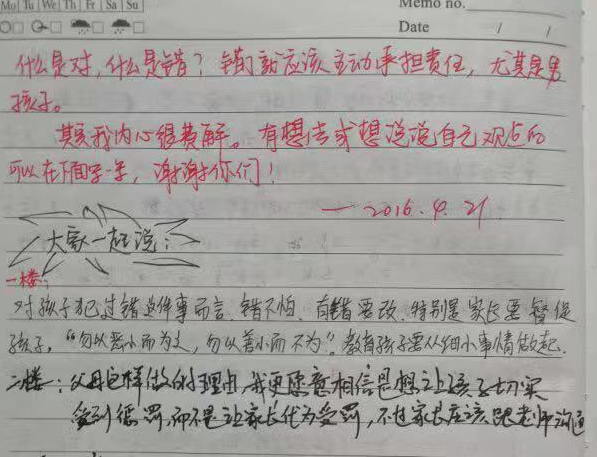 Mo Tu We Th Fr Sa Su
Memo no.
Date / /
什么是对,什么是错?错的就应该主动承担责任,尤其是男
孩子。
其实我内心很费解。有想法或想说说自己观点的
可以在下面写一写,谢谢你们!
—2016.9.21
大家一起说:
一楼:
对孩子犯过错这件事而言,错不怕,有错要改,特别是家长要督促
孩子,“勿以恶小而为之,勿以善小而不为”。教育孩子要从细小事情做起.
二楼:父母这样做的理由,我更愿意相信是想让孩子切实
受到惩罚,而不是让家长代为受罚,不过家长应该跟老师沟通